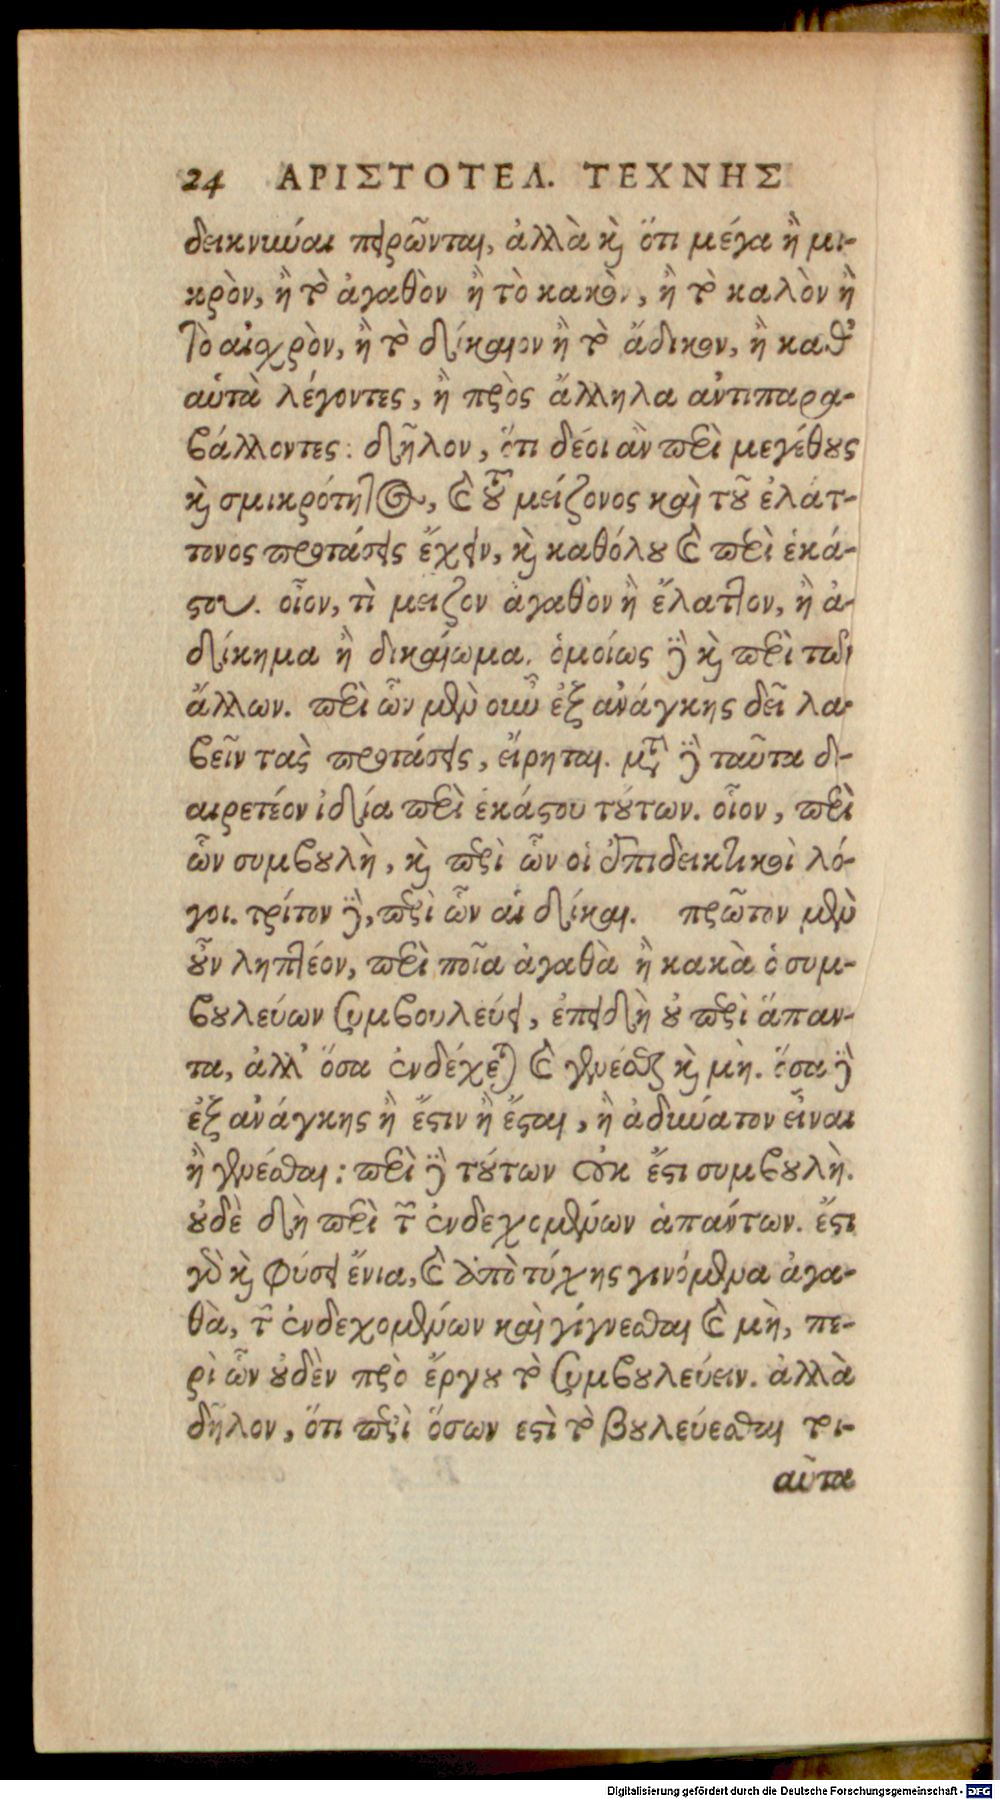 24 ΑΡΙΣΤΟΤΕΛ. ΤΕΧΝΗΣ
δεικνύναι πειρῶνται, ἀλλὰ καὶ ὅτι μέγα ἢ μι-
κρὸν, ἢ τὸ ἀγαθὸν ἢ τὸ κακὸν, ἢ τὸ καλὸν ἢ
τὸ αἰσχρὸν, ἢ τὸ δίκαιον ἢ τὸ ἄδικον, ἢ καθ'
αὑτὰ λέγοντες, ἢ πρὸς ἄλληλα ἀντιπαρα-
βάλλοντες: δῆλον, ὅτι δέοι ἂν περὶ μεγέθους
καὶ σμικρότητος, καὶ τοῦ μείζονος καὶ τοῦ ἐλάτ-
τονος προτάσεις ἔχειν, καὶ καθόλου καὶ περὶ ἑκά-
στου. οἷον, τὶ μεῖζον ἀγαθὸν ἢ ἔλαττον, ἢ ἀ-
δίκημα ἢ δικαίωμα. ὁμοίως δὲ καὶ περὶ τῶν
ἄλλων. περὶ ὧν μὲν οὖν ἐξ ἀνάγκης δεῖ λα-
βεῖν τὰς προτάσεις, εἴρηται. μετὰ δὲ ταῦτα δι-
αιρετέον ἰδίᾳ περὶ ἑκάστου τούτων. οἷον, περὶ
ὧν συμβουλὴ, καὶ περὶ ὧν οἱ ἐπιδεικτικοὶ λό-
γοι. τρίτον δὲ, περὶ ὧν αἱ δίκαι. πρῶτον μὲν
οὖν ληπτέον, περὶ ποῖα ἀγαθὰ ἢ κακὰ ὁ συμ-
βουλεύων συμβουλεύει, ἐπειδὴ οὐ περὶ ἅπαν-
τα, ἀλλ' ὅσα ἐνδέχεται καὶ γενέσθαι καὶ μὴ. ὅσα δὲ
ἐξ ἀνάγκης ἢ ἔστιν ἢ ἔσται, ἢ ἀδύνατον εἶναι
ἢ γενέσθαι: περὶ δὲ τούτων οὐκ ἔστι συμβουλὴ.
οὐδὲ δὴ περὶ τῶν ἐνδεχομένων ἁπάντων. ἔστι
γὰρ καὶ φύσει ἔνια, καὶ ἀπὸ τύχης γινόμενα ἀγα-
θὰ, τῶν ἐνδεχομένων καὶ γίγνεσθαι καὶ μὴ, πε-
ρὶ ὧν οὐδὲν πρὸ ἔργου τὸ συμβουλεύειν. ἀλλὰ
δῆλον, ὅτι περὶ ὅσων ἐστὶ τὸ βουλεύεσθαι τοι-
αῦτα
Digitalisierung gefördert durch die Deutsche Forschungsgemeinschaft - DFG